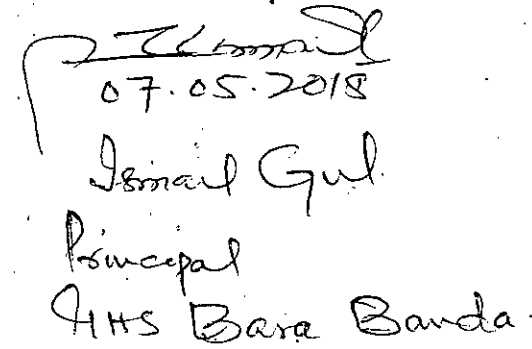 07.05.2018
Ismail Gul
Principal
Bara Banda.